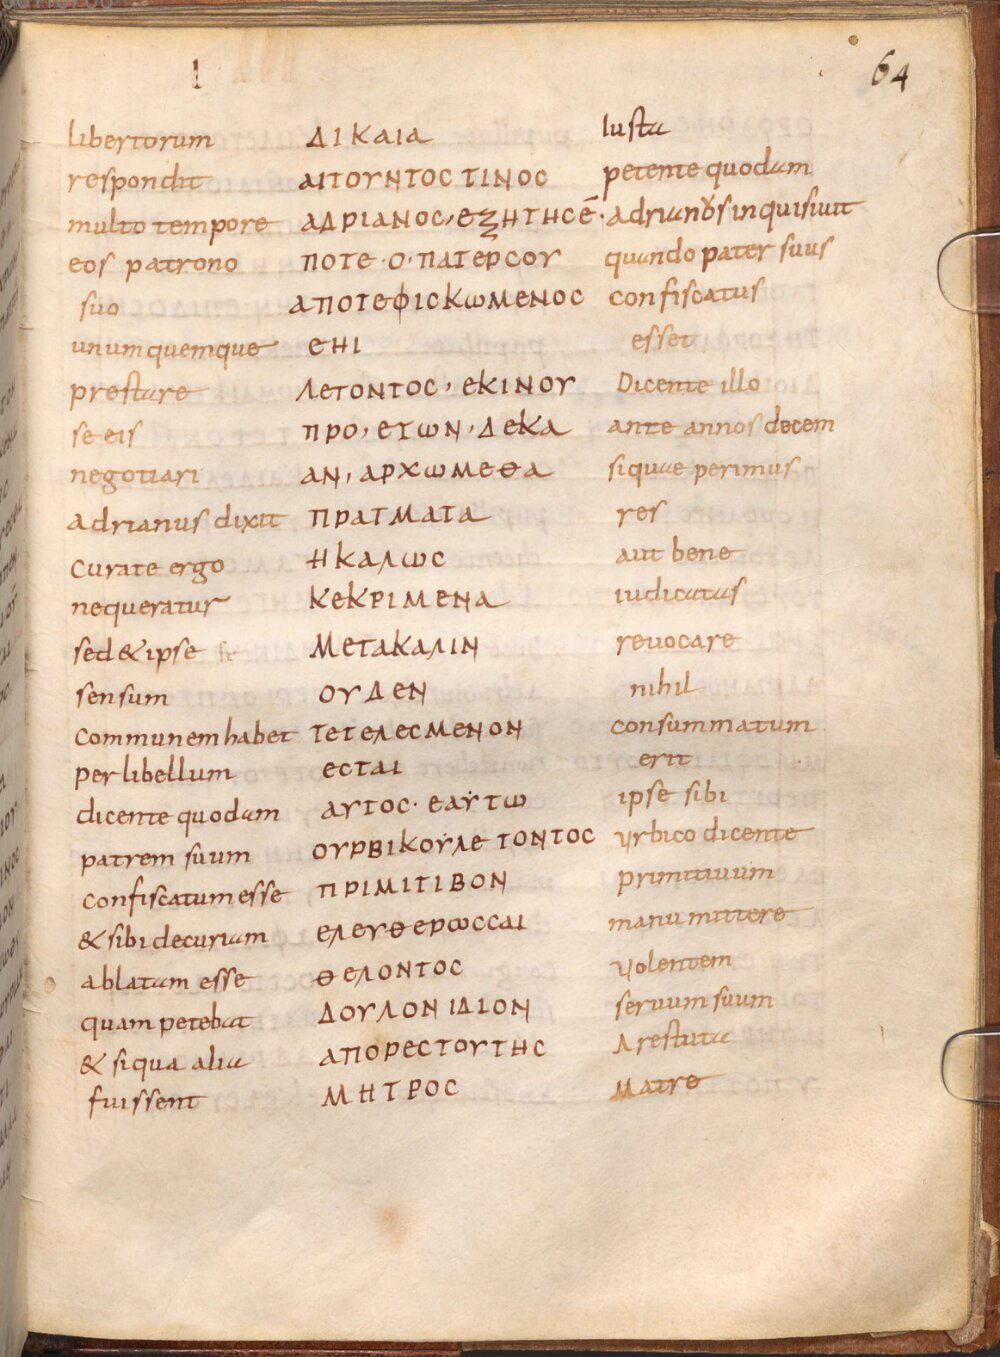 64
l
libertorum ΔΙΚΑΙΑ Iusta
respondit ΑΙΤΟΥΝΤΟС ΤΙΝΟС petente quodam
multo tempore ΑΔΡΙΑΝΟС, ΕΞΗΤΗСΕ̄ · adrianus inquisiuit
eos patrono ΠΟΤΕ · Ο · ΠΑΤΕΡСΟΥ quando pater suus
suo ΑΠΟΤΕΦΙСΚωΜΕΝΟС confiscatus
unumquemque ΕΗΙ esset
prestare ΛΕΤΟΝΤΟС, ΕΚΙΝΟΥ Dicente illo
se eis ΠΡΟ, ΕΤωΝ, ΔΕΚΑ ante annos decem
negotiari ΑΝ, ΑΡΧωΜΕΘΑ siquae perimus
adrianus dixit ΠΡΑΤΜΑΤΑ res
Curate ergo ΗΚΑΛωС aut bene
nequeratur ΚΕΚΡΙΜΕΝΑ iudicatas
sed & ipse se ΜΕΤΑΚΑΛΙΝ reuocare
sensum ΟΥΔΕΝ nihil
Communem habet ΤΕΤΕΛΕСΜΕΝΟΝ consummatum
per libellum ΕСΤΑΙ erit
dicente quodam ΑΥΤΟС · ΕΑΥΤω ipse sibi
patrem suum ΟΥΡΒΙΚΟΥΛΕ ΤΟΝΤΟС Vrbico dicente
confiscatum esse ΠΡΙΜΙΤΙΒΟΝ primitiuum
& sibi decuriam ΕΛΕΥΘΕΡωССΑΙ manu mittere
ablatam esse ΘΕΛΟΝΤΟС Volentem
quam petebat ΔΟΥΛΟΝ ΙΔΙΟΝ seruum suum
& siqua alia ΑΠΟΡΕСΤΟΥΤΗС Arestuta
fuissent ΜΗΤΡΟС Matre